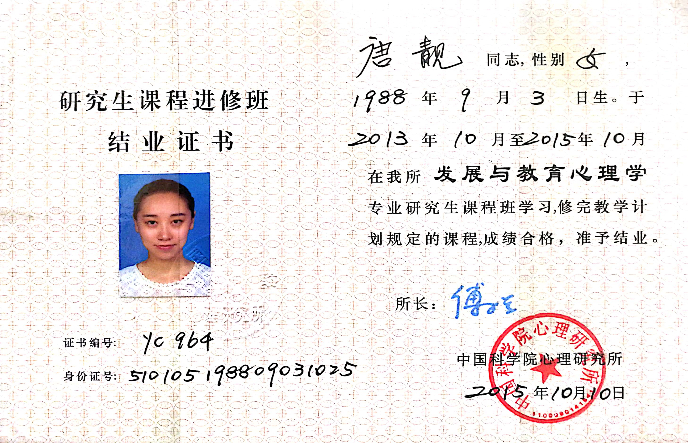 研究生课程进修班
结业证书
证书编号: YC 964
身份证号: 510105198809031025
唐靓 同志, 性别 女 ,
1988 年 9 月 3 日生。于
2013 年 10 月至2015年 10 月
在我所 发展与教育心理学
专业研究生课程班学习,修完教学计
划规定的课程,成绩合格，准予结业。
所长:
中国科学院心理研究所
2015 年10月10日
中国科学院心理研究所